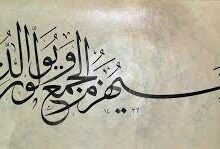 سيهزم الجمع ويولون الد
١٤٢٢